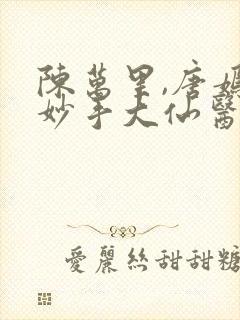 陳萬里,唐
妙手大仙醫
愛麗絲甜甜糖